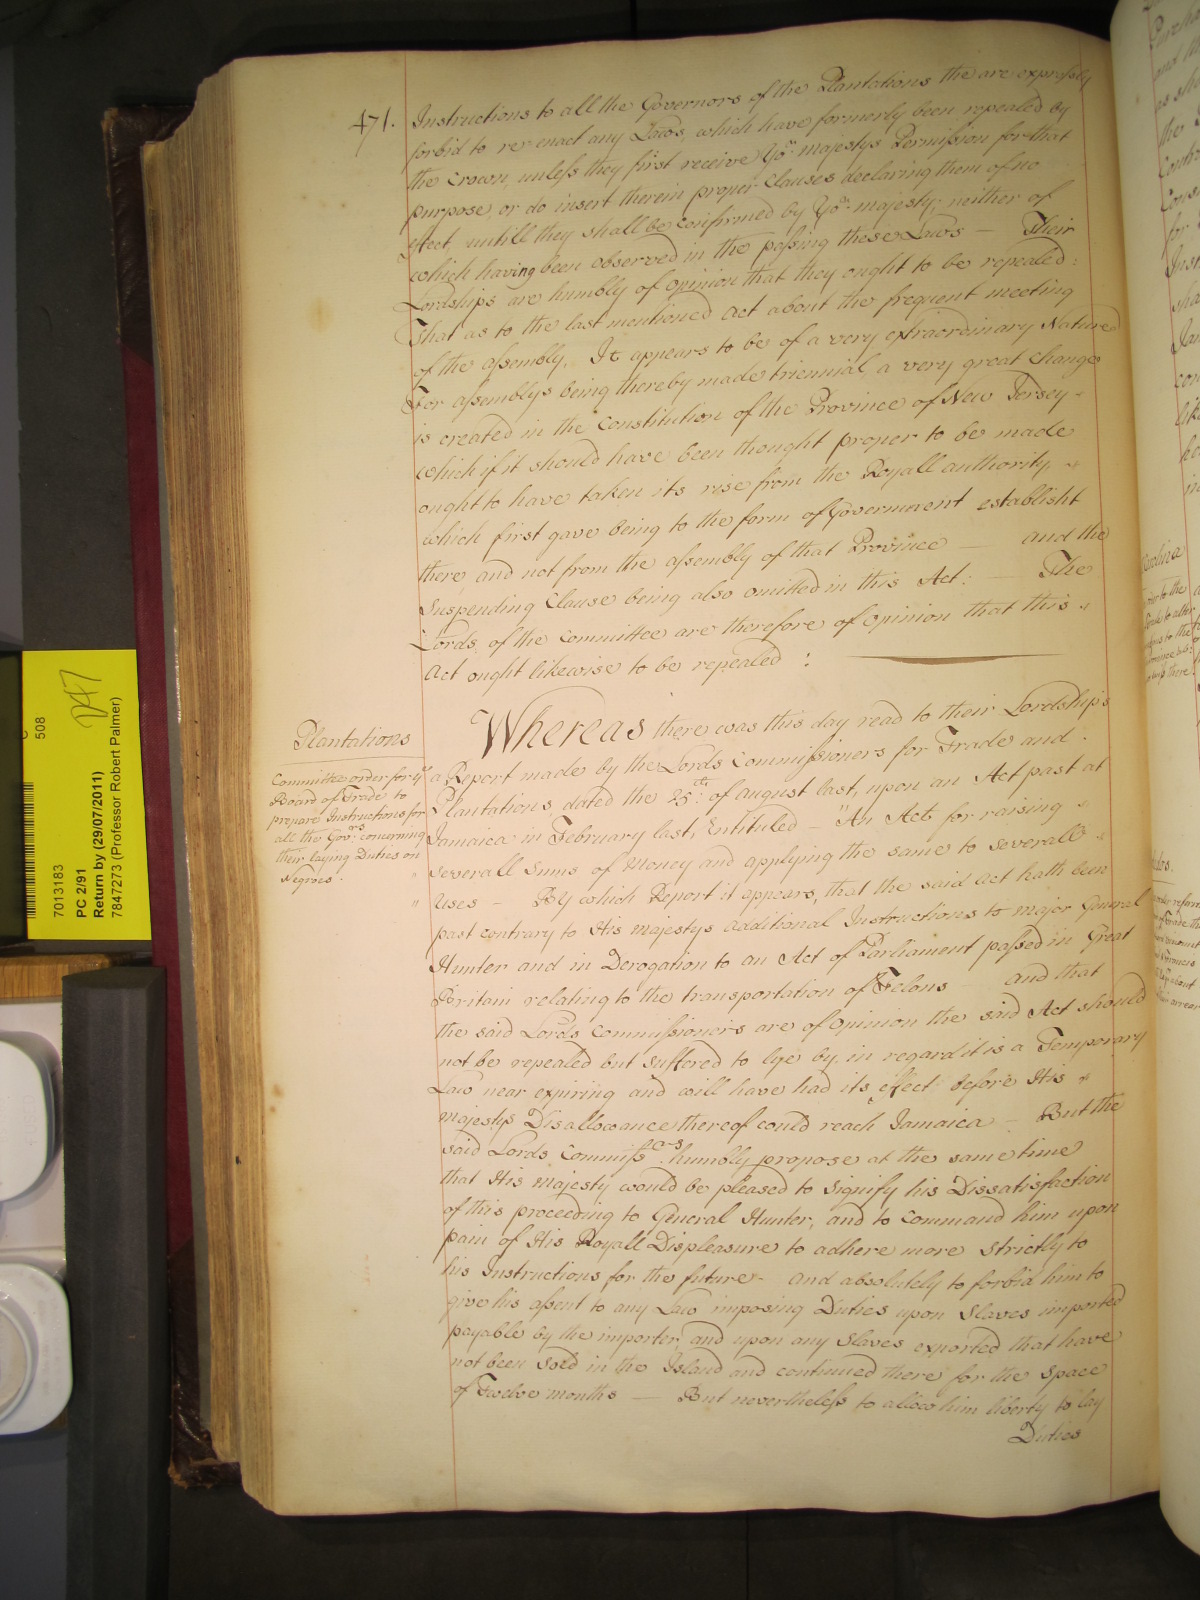 471.
Instructions to all the Governors of the Plantations the are expressly
forbid to re-enact any Laws, which have formerly been repealed by
the Crown, unless they first receive Yor. majestys Permission for that
purpose, or do insert therein proper Clauses declaring them of no
effect, untill they shall be confirmed by Yor. majesty; neither of
which having been observed in the passing these Laws — Their
Lordships are humbly of Opinion that they ought to be repealed:
That as to the last mentioned Act about the frequent meeting
of the assembly, It appears to be of a very extraordinary Nature
For assemblys being thereby made triennial, a very great Change
is created in the Constitution of the Province of New Jersey
which if it should have been thought proper to be made
ought to have taken its rise from the Royall authority,
which first gave being to the form of Government establisht
there and not from the assembly of that Province — and the
Suspending Clause being also omitted in this Act: — The
Lords of the Committee are therefore of Opinion that this
Act ought likewise to be repealed :
Plantations
Committee order for ye
Board of Trade to
prepare Instructions for
all the Govrs. concerning
their laying Duties on
Negroes.
Whereas there was this day read to their Lordships
a Report made by the Lords Commissioners for Trade and
Plantations dated the 25th: of august last, upon an Act past at
Jamaica in February last, Entituled "An Act for raising "
" severall Sums of Money and applying the same to severall "
" Uses — By which Report it appears, that the said Act hath been
past contrary to His majestys additional Instructions to major General
Hunter and in Derogation to an Act of Parliament passed in Great
Britain relating to the transportation of Felons and that
the said Lords Commissioners are of opinion the said Act should
not be repealed but suffered to lye by in regard it is a Temporary
Law near expiring and will have had its effect before His
majestys Disallowance thereof could reach Jamaica — But the
said Lords Commissrs. humbly propose at the same time
that His majesty would be pleased to signify his Dissatisfaction
of this proceeding to General Hunter, and to command him upon
pain of His Royall Displeasure to adhere more strictly to
his Instructions for the future — and absolutely to forbid him to
give his assent to any Law imposing Duties upon Slaves imported
payable by the importer and upon any Slaves exported that have
not been Sold in the Island and continued there for the space
of Twelve months — But nevertheless to allow him liberty to lay
Duties
508
7013183
PC 2/91
Return by (29/07/2011)
7847273 (Professor Robert Palmer)